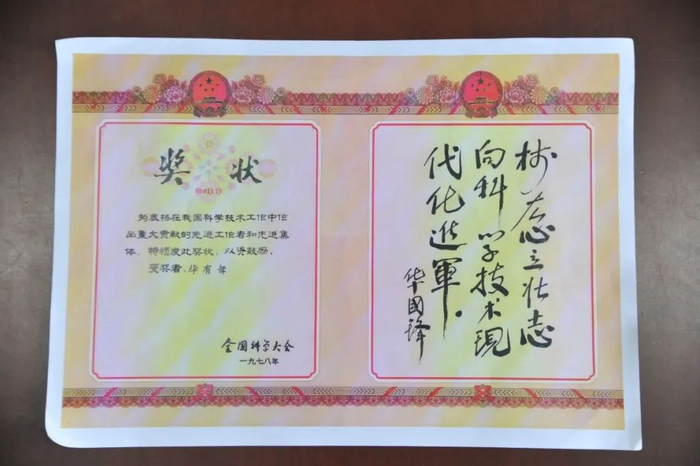 奖状
为表扬在我国科学技术工作中作
出重大贡献的先进工作者和先进集
体，特颁发此奖状，以资鼓励。
受奖者：
全国科学大会
一九七八年
树雄心立壮志
向科学技术現
代化進軍。
华國锋